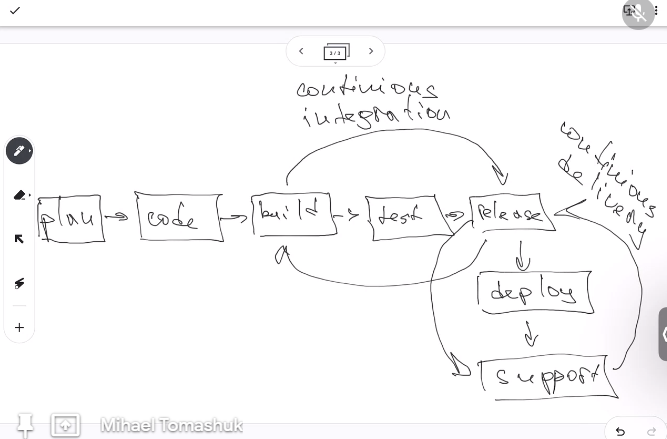 3/3
continious
integration
continious
delivery
plan
code
build
test
release
deploy
support
Mihael Tomashuk